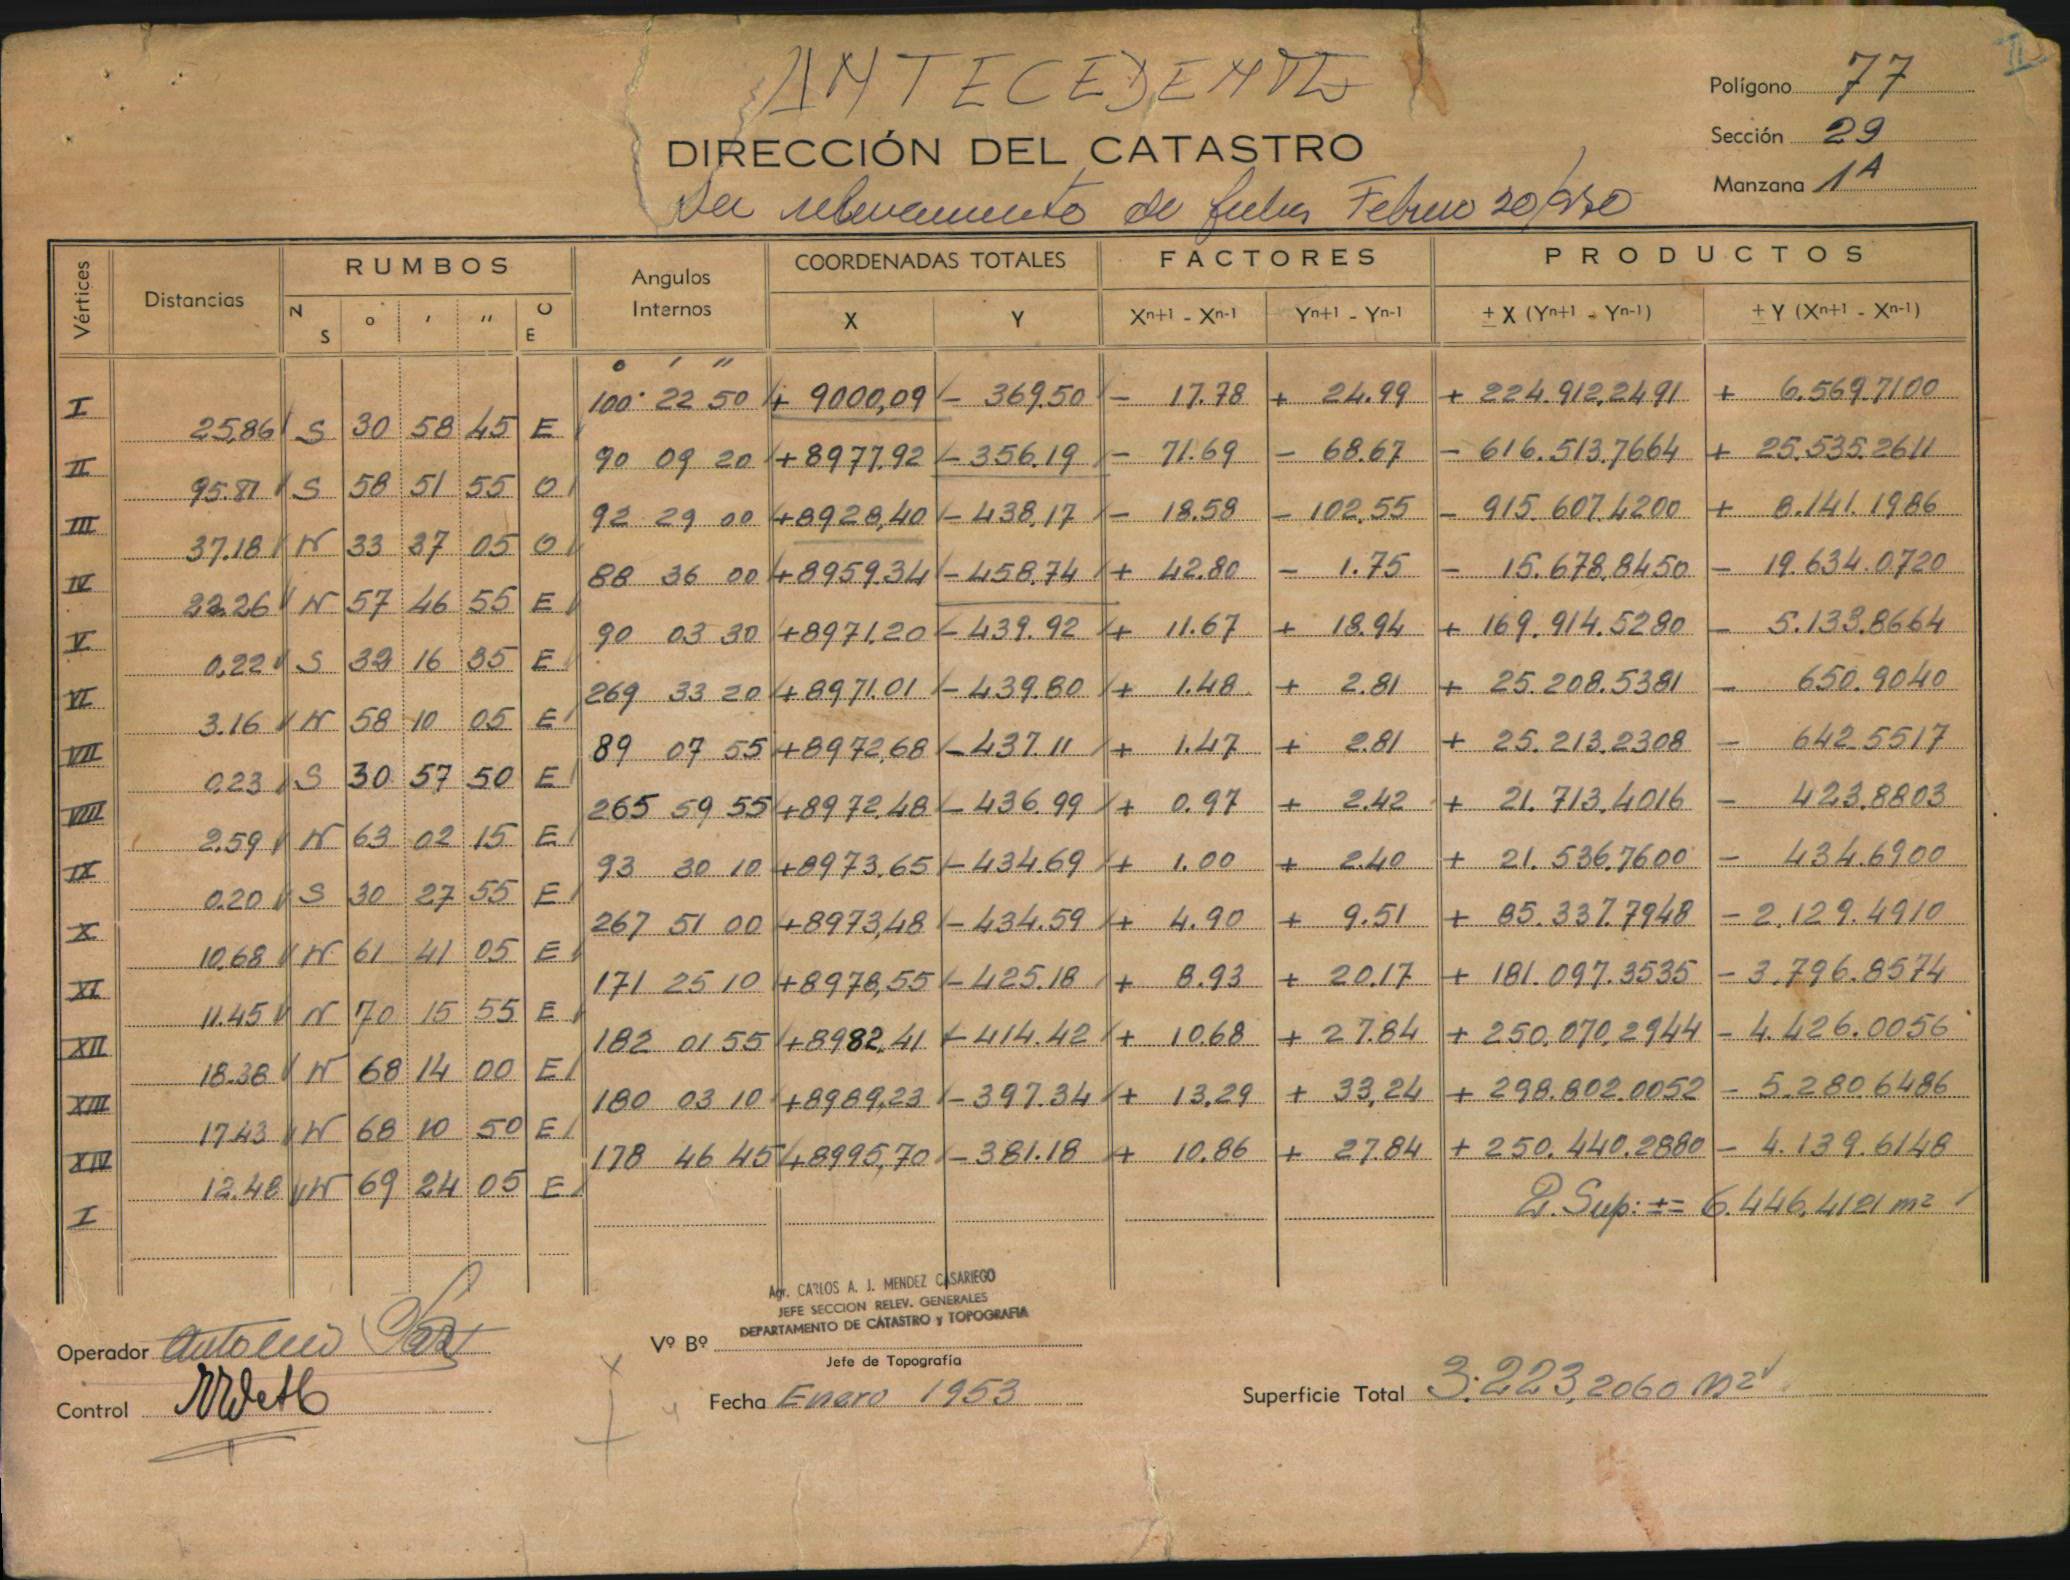 II
ANTECEDENTES
Polígono 77
DIRECCIÓN DEL CATASTRO
Sección 29
Manzana 1A
relevamiento de fecha Febrero 20/950
Vértices Distancias RUMBOS Angulos Internos COORDENADAS TOTALES FACTORES PRODUCTOS
N S o ' '' O E X Y Xⁿ⁺¹ - Xⁿ⁻¹ Yⁿ⁺¹ - Yⁿ⁻¹ ± X (Yⁿ⁺¹ - Yⁿ⁻¹) ± Y (Xⁿ⁺¹ - Xⁿ⁻¹)
o ' ''
I 100° 22 50 + 9000,09 - 369.50 - 17.78 + 24.99 + 224.912,2491 + 6.569.7100
25,86 S 30 58 45 E
II 90 09 20 +8977,92 - 356.19 - 71.69 - 68.67 - 616.513.7664 + 25.535.2611
95.81 S 58 51 55 O
III 92 29 00 +8928,40 - 438,17 - 18.58 - 102,55 - 915.607.4200 + 8.141.1986
37.18 N 33 37 05 O
IV 88 36 00 +8959.34 - 458,74 + 42.80 - 1.75 - 15.678,8450 - 19.634.0720
22.26 N 57 46 55 E
V 90 03 30 +8971.20 - 439.92 + 11.67 + 18.94 + 169.914.5280 - 5.133.8664
0,22 S 32 16 35 E
VI 269 33 20 +8971.01 - 439.80 + 1.48 + 2.81 + 25.208.5381 - 650.9040
3.16 N 58 10 05 E
VII 89 07 55 +8972,68 - 437.11 + 1.47 + 2.81 + 25.213.2308 - 642.5517
0.23 S 30 57 50 E
VIII 265 59 55 +8972,48 - 436.99 + 0.97 + 2.42 + 21.713.4016 - 423.8803
2.59 N 63 02 15 E
IX 93 30 10 +8973,65 - 434.69 + 1.00 + 2.40 + 21.536.7600 - 434.6900
0.20 S 30 27 55 E
X 267 51 00 +8973,48 - 434.59 + 4.90 + 9.51 + 85.337.7948 - 2.129.4910
10,68 N 61 41 05 E
XI 171 25 10 +8978,55 - 425.18 + 8.93 + 20.17 + 181.097.3535 - 3.796.8574
11.45 N 70 15 55 E
XII 182 01 55 +8982,41 - 414.42 + 10.68 + 27.84 + 250.070,2944 - 4.426.0056
18.38 N 68 14 00 E
XIII 180 03 10 +8989,23 - 397.34 + 13,29 + 33,24 + 298.802.0052 - 5.280.6486
17.43 N 68 10 50 E
XIV 178 46 45 +8995,70 - 381.18 + 10.86 + 27.84 + 250.440.2880 - 4.139.6148
12.48 N 69 24 05 E
I 2.Sup: ±= 6.446,4121 m²
Agr. CARLOS A. J. MENDEZ CASARIEGO
JEFE SECCION RELEV. GENERALES
DEPARTAMENTO DE CATASTRO y TOPOGRAFIA
Operador
Vº Bº
Jefe de Topografía
Control
Fecha Enero 1953
Superficie Total 3.223,2060 m²